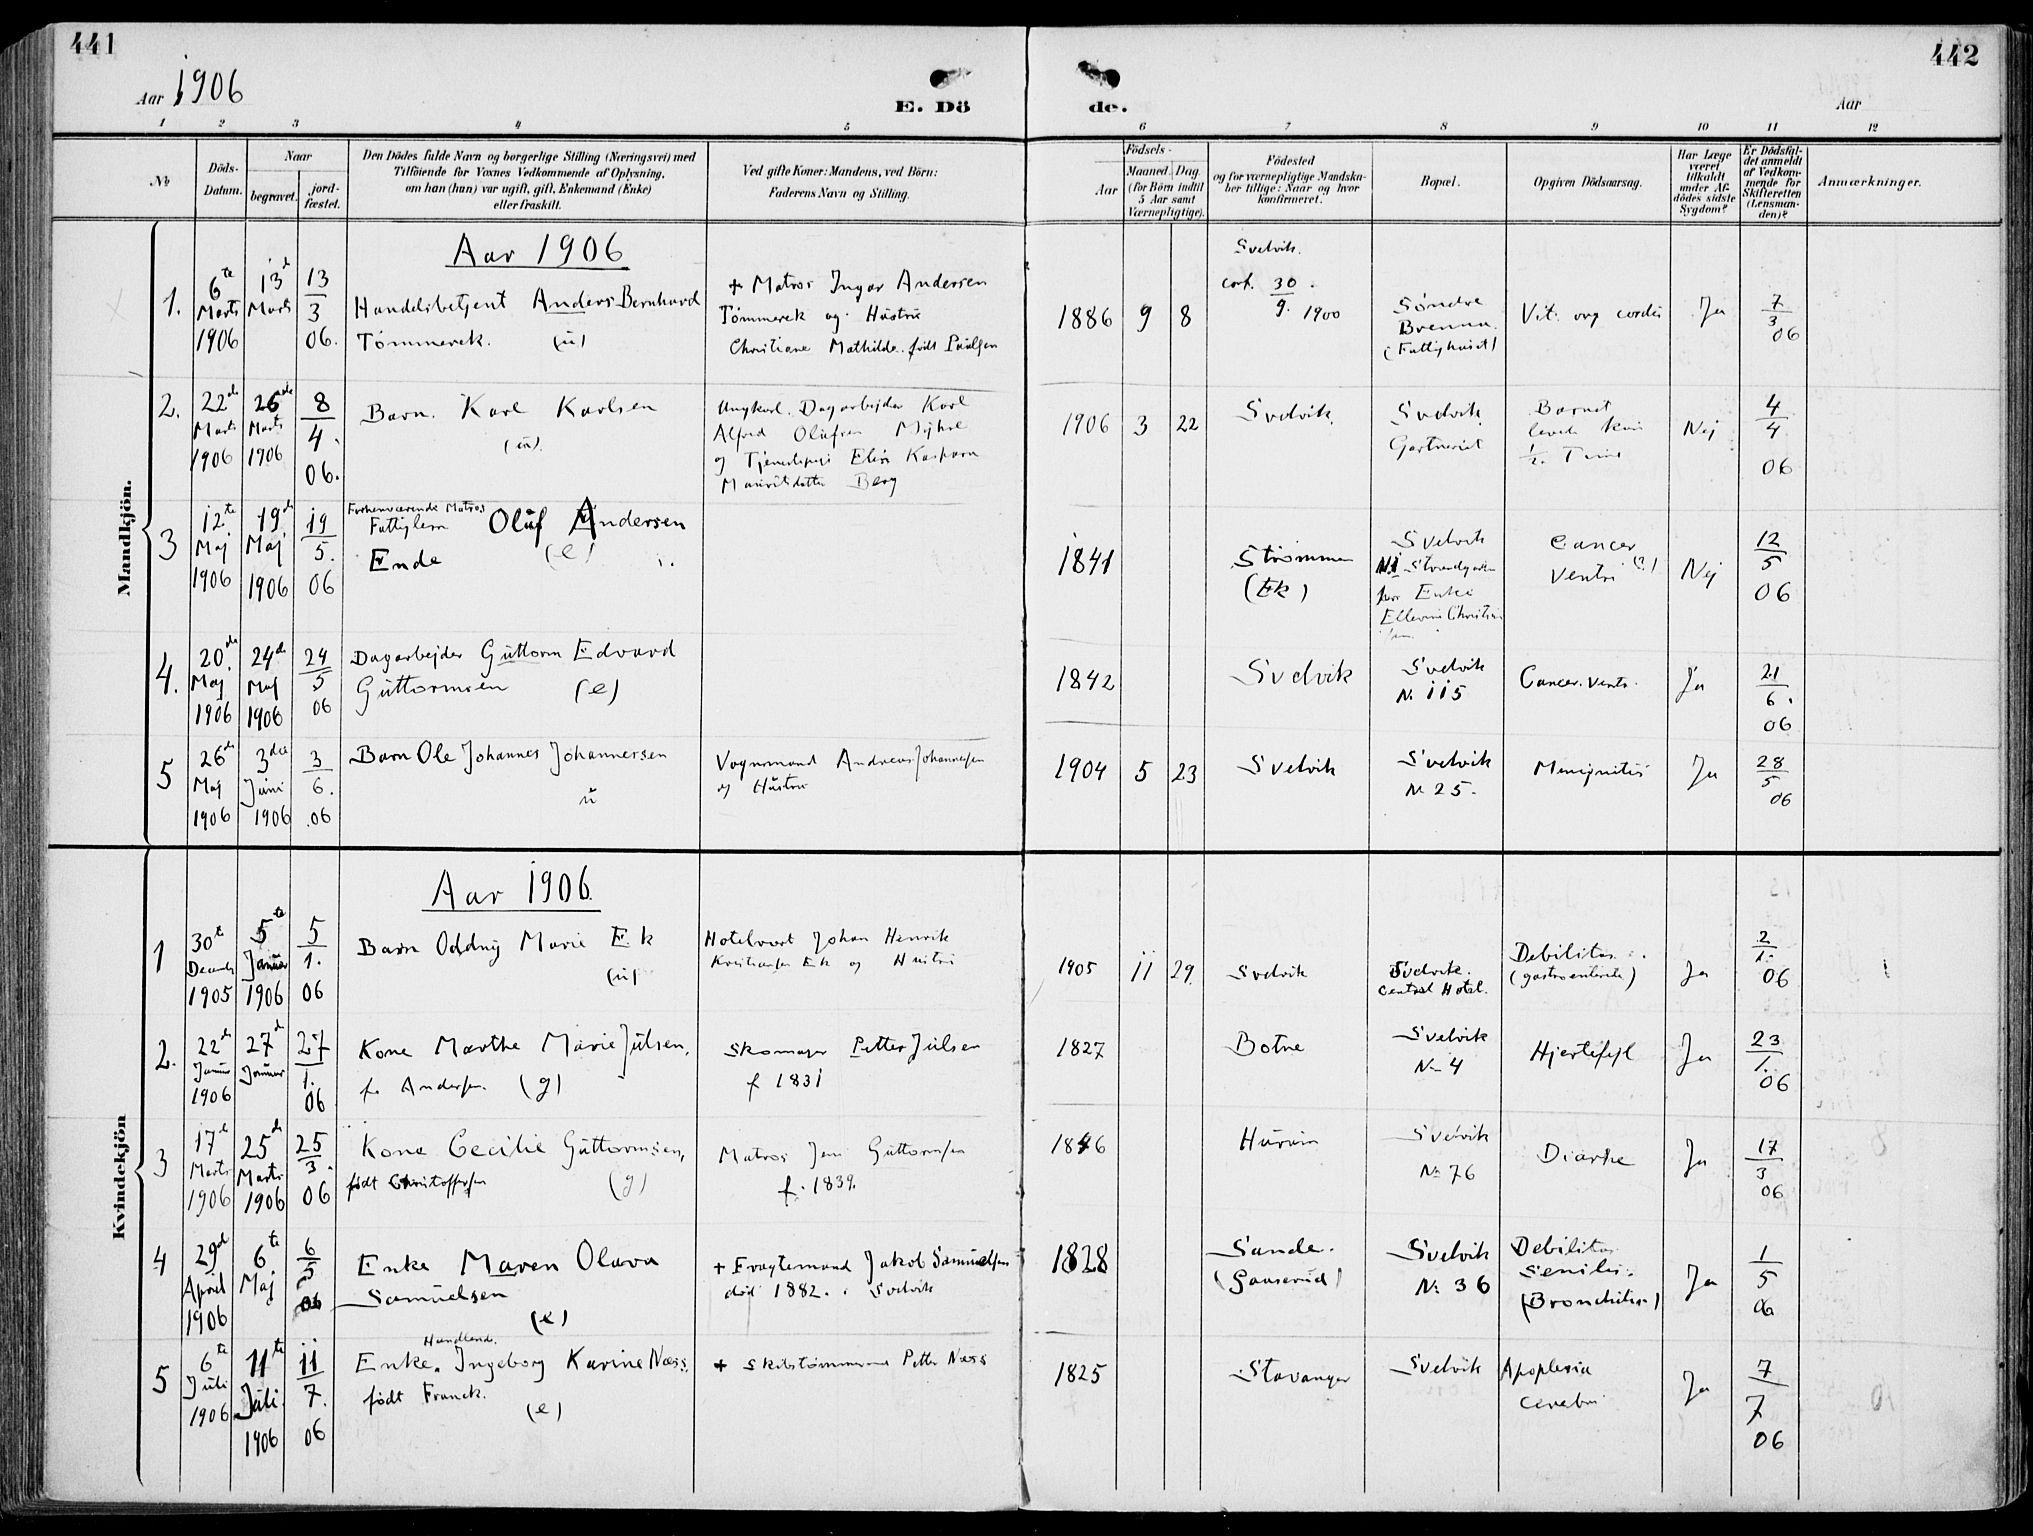 441
442
Aar 1906
E. Dö
de.
Aar
1 2 3 4 5 6 7 8 9 10 11 12
№
Döds-Datum.
Naar
begravet.
jord-fæstet.
Den Dödes fulde Navn og borgerlige Stilling (Næringsvei) med
Tilföiende for Voxnes Vedkommende af Oplysning,
om han (hun) var ugift, gift, Enkemand (Enke)
eller fraskilt.
Ved gifte Koner: Mandens, ved Börn:
Faderens Navn og Stilling.
Födsels-
Aar
Maaned. Dag.
(for Börn indtil
5 Aar samt
Værnepligtige).
Födested
og for værnepligtige Mandska-
ber tillige: Naar og hvor
konfirmeret.
Bopæl.
Opgiven Dödsaarsag.
Har Læge
været
tilkaldt
under Af-
dödes sidste
Sygdom?
Er Dödsfal-
det anmeldt
af Vedkom-
mende for
Skifteretten
(Lensman-
den)?
Anmærkninger.
Mandkjön.
Aar 1906
1. 6te Marts 1906
13d Marts
13/3 06.
Handelsbetjent Anders Bernhard
Tømmerek. (ü)
+ Matros Ingar Andersen
Tømmerek og Hustru
Christiane Mathilde født
1886 9 8
Svelvik.
30/9 1900
Søndre
Brenna.
(Fattighuset)
Vit. org cordis
Ja
7/3 06
2. 22de Marts 1906
26de Marts 1906
8/4. 06.
Barn. Karl Karlsen
(ü).
Ungkarl. Dagarbejder Karl
Alfred Olufsen
og Elise Kaspara
Berg
1906 3 22
Svelvik.
Svelvik.
Gartneriet
Barnet
levede kun
1/2. Time
Nej
4/4 06
3 12te Maj 1906
19de Maj 1906
19/5. 06
Forhenværende Matros
Fattiglem Oluf Andersen
Ende (e)
1841
Strømmen
(Ek)
Svelvik
Strandgaden
Enke
Cancer
Ventri (?)
Nej
12/5 06
4. 20de Maj 1906
24de Maj 1906
24/5 06
Dagarbejder Guttorm Edvard
Guttormsen (e)
1842
Svelvik
Svelvik
N. 115
Cancer. ventr.
Ja
21/6. 06
5 26de Maj 1906
3die Juni 1906
3/6. .06
Barn Ole Johannes Johannesen
ü
Vognmand Andreas Johannesen
og Hustru
1904 5 23
Svelvik
Svelvik
N. 25.
Meningitis
Ja
28/5 06
Kvindekjön
Aar 1906.
1 30te Decemb 1905
5te Januar 1906
5/1. 06
Barn Oddny Marie Ek
(ü)
Hotelvært Johan Henrik
Kristiansen Ek og Hustru
1905 11 29.
Svelvik
Svelvik.
Central Hotel.
Debilitas.
(gastroenterite)
Ja
2/1. 06
2. 22de Januar 1906
27d Januar
27/1. 06
Kone Marthe Marie Julsen,
f. Andersen. (g)
Skomager Petter Julsen
f 1831
1827
Botne
Svelvik
N. 4
Hjertefejl
Ja
23/1. 06
3 17d Marts 1906
25de Marts 1906
25/3. 06
Kone Cecilie Guttormsen,
født Christoffersen (g)
Matros Jens Guttormsen
f. 1839.
1846
Hurum
Svelvik
N. 76
Diarhe
Ja
17/3 06
4 29d April 1906
6te Maj
6/5 06
Enke Maren Olava
Samuelsen
(e)
+ Fragtemand Jakob Samuelsen
død 1882. Svelvik
1828
Sande.
Svelvik
N. 36
Debilitas
Senilis.
Ja
1/5 06
5 6te Juli 1906
11te Juli. 1906
11/7. 06
Handlend.
Enke. Ingeborg Karine Næss,
født Franck.
(e)
+ Skibstømmermand Petter Næss
1825
Stavanger
Svelvik
Apoplexia
cerebri
Ja
7/7 06